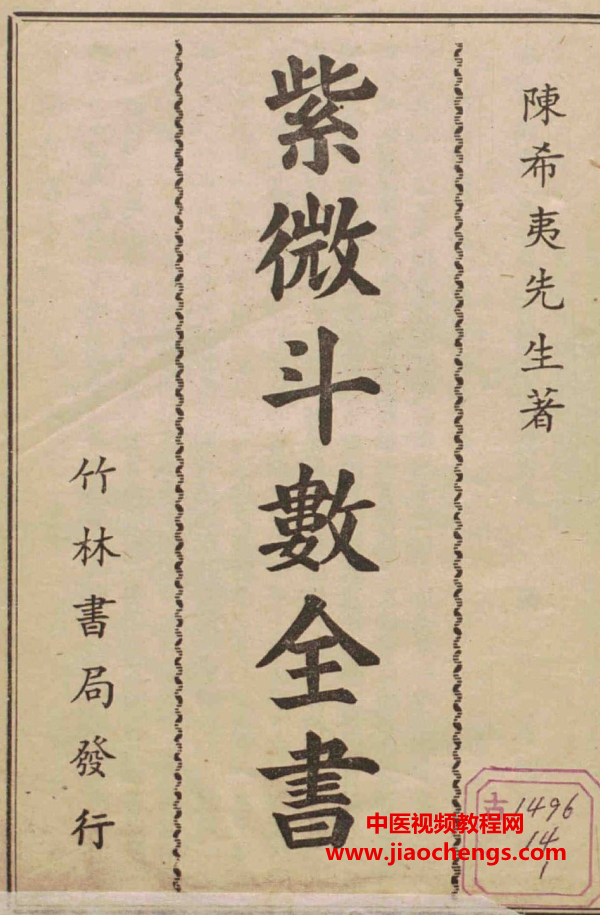 陳希夷先生著
紫微斗數全書
竹林書局發行
古
1496
14
1
中医视频教程网
www.jiaochengs.com